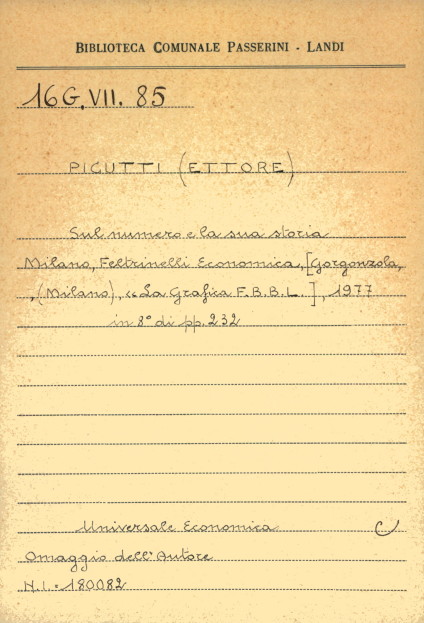 BIBLIOTECA COMUNALE PASSERINI - LANDI
16G.VII. 85
PICUTTI (ETTORE)
Sul numero e la sua storia
Milano, Feltrinelli Economica, [Gorgonzola,
, (Milano), «La Grafica F.B.B.L. ], 1977
in 8° di pp. 232
Universale Economica
Omaggio dell'Autore
N.I. = 180082